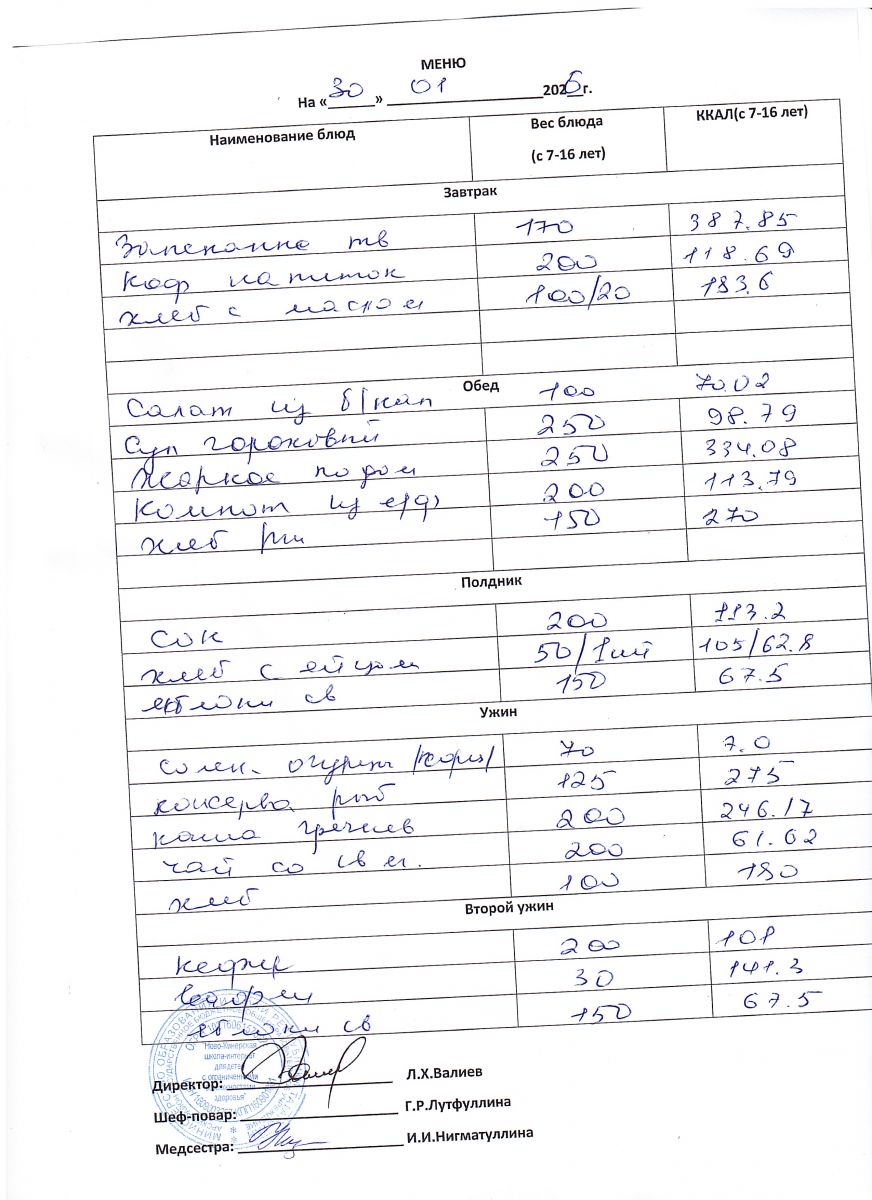 МЕНЮ
На «30» 01 2025 г.
Наименование блюд Вес блюда (с 7-16 лет) ККАЛ(с 7-16 лет)
Завтрак
Запеканка тв 170 387.85
Коф напиток 200 118.69
хлеб с маслом 100/20 183.6
Обед
Салат из б/кап 100 70.02
Суп гороховый 250 98.79
Жаркое по дом 250 334.08
Компот из с/ф 200 113.79
хлеб рш 150 270
Полдник
Сок 200 113.2
хлеб с яйцом 50/1шт 105/62.8
яблоки св 150 67.5
Ужин
солен. огурец /порц/ 70 7.0
консерва рыб 125 275
каша гречнев 200 246.17
чай со св ем. 200 61.02
хлеб 100 180
Второй ужин
кефир 200 101
вафли 30 141.3
яблоки св 150 67.5
Ново-Кинерская
школа-интернат
для детей
с ограниченными
возможностями
здоровья"
Директор: Л.Х.Валиев
Шеф-повар: Г.Р.Лутфуллина
Медсестра: И.И.Нигматуллина